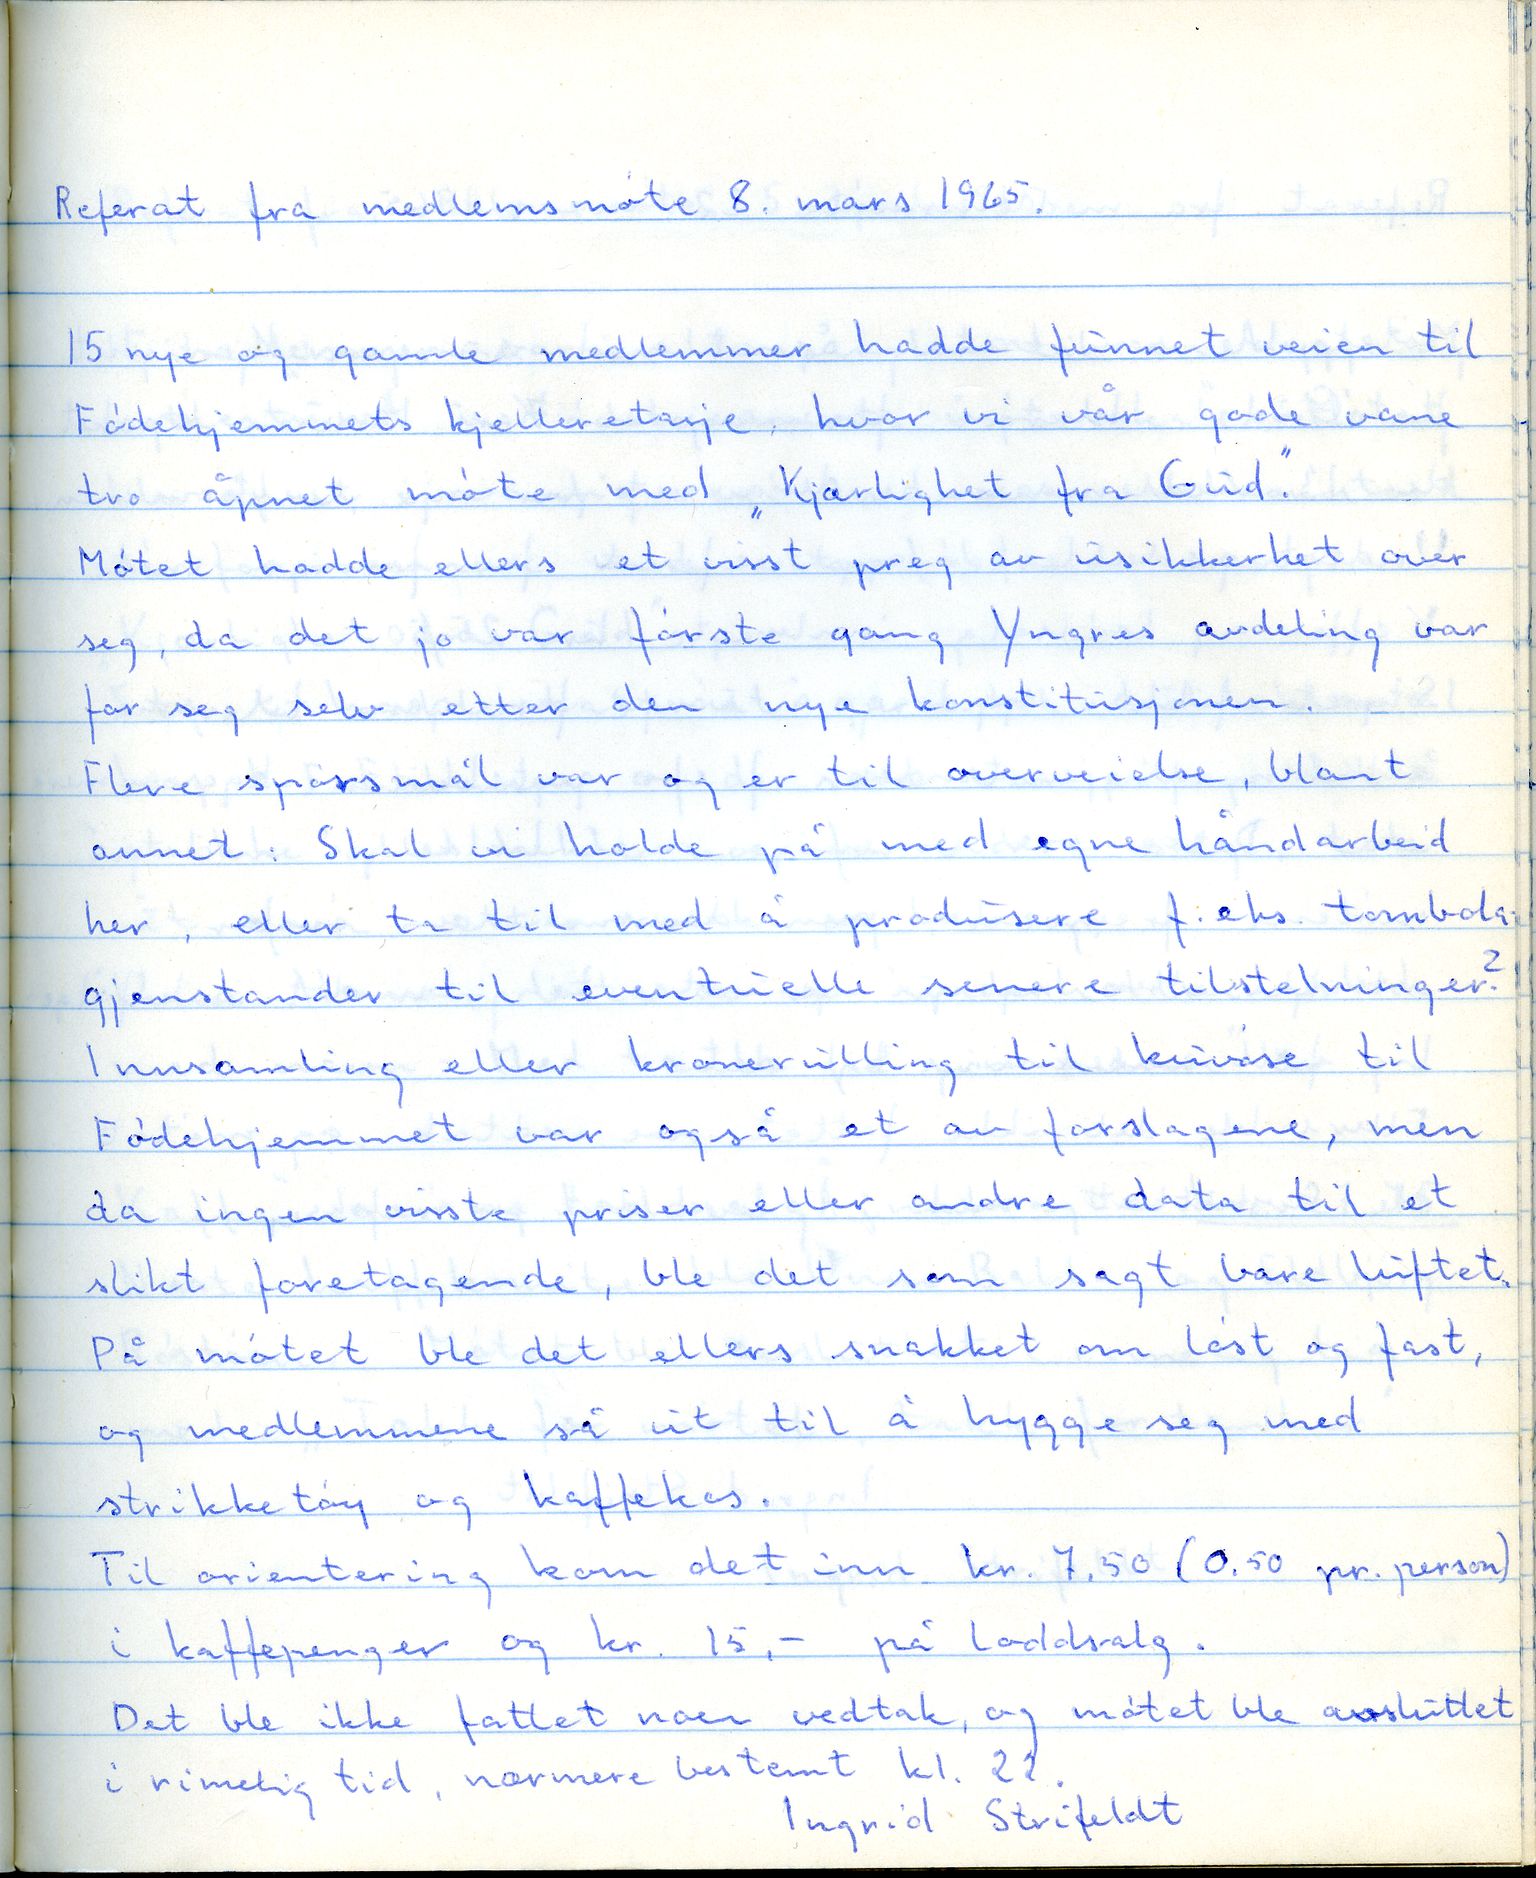 Referat fra medlemsmøte 8. mars 1965.
15 nye og gamle medlemmer hadde funnet veien til
Fødehjemmets kjelleretasje, hvor vi vår gode vane
tro åpnet møte med „Kjærlighet fra Gud.”
Møtet hadde ellers et visst preg av usikkerhet over
seg, da det jo var første gang Yngres avdeling var
for seg selv etter den nye konstitusjonen.
Flere spørsmål var og er til overveielse, blant
annet: Skal vi holde på med egne håndarbeid
her, eller ta til med å produsere f.eks. tombola-
gjenstander til eventuelle senere tilstelninger?
Innsamling eller kronerulling til kuvøse til
Fødehjemmet var også et av forslagene, men
da ingen visste priser eller andre data til et
slikt foretagende, ble det som sagt bare luftet.
På møtet ble det ellers snakket om løst og fast,
og medlemmene så ut til å hygge seg med
strikketøy og kaffekos.
Til orientering kom det inn kr. 7.50 (0.50 pr. person)
i kaffepenger og kr. 15,- på loddsalg.
Det ble ikke fattet noen vedtak, og møtet ble avsluttet
i rimelig tid, nærmere bestemt kl. 22.
Ingrid Strifeldt